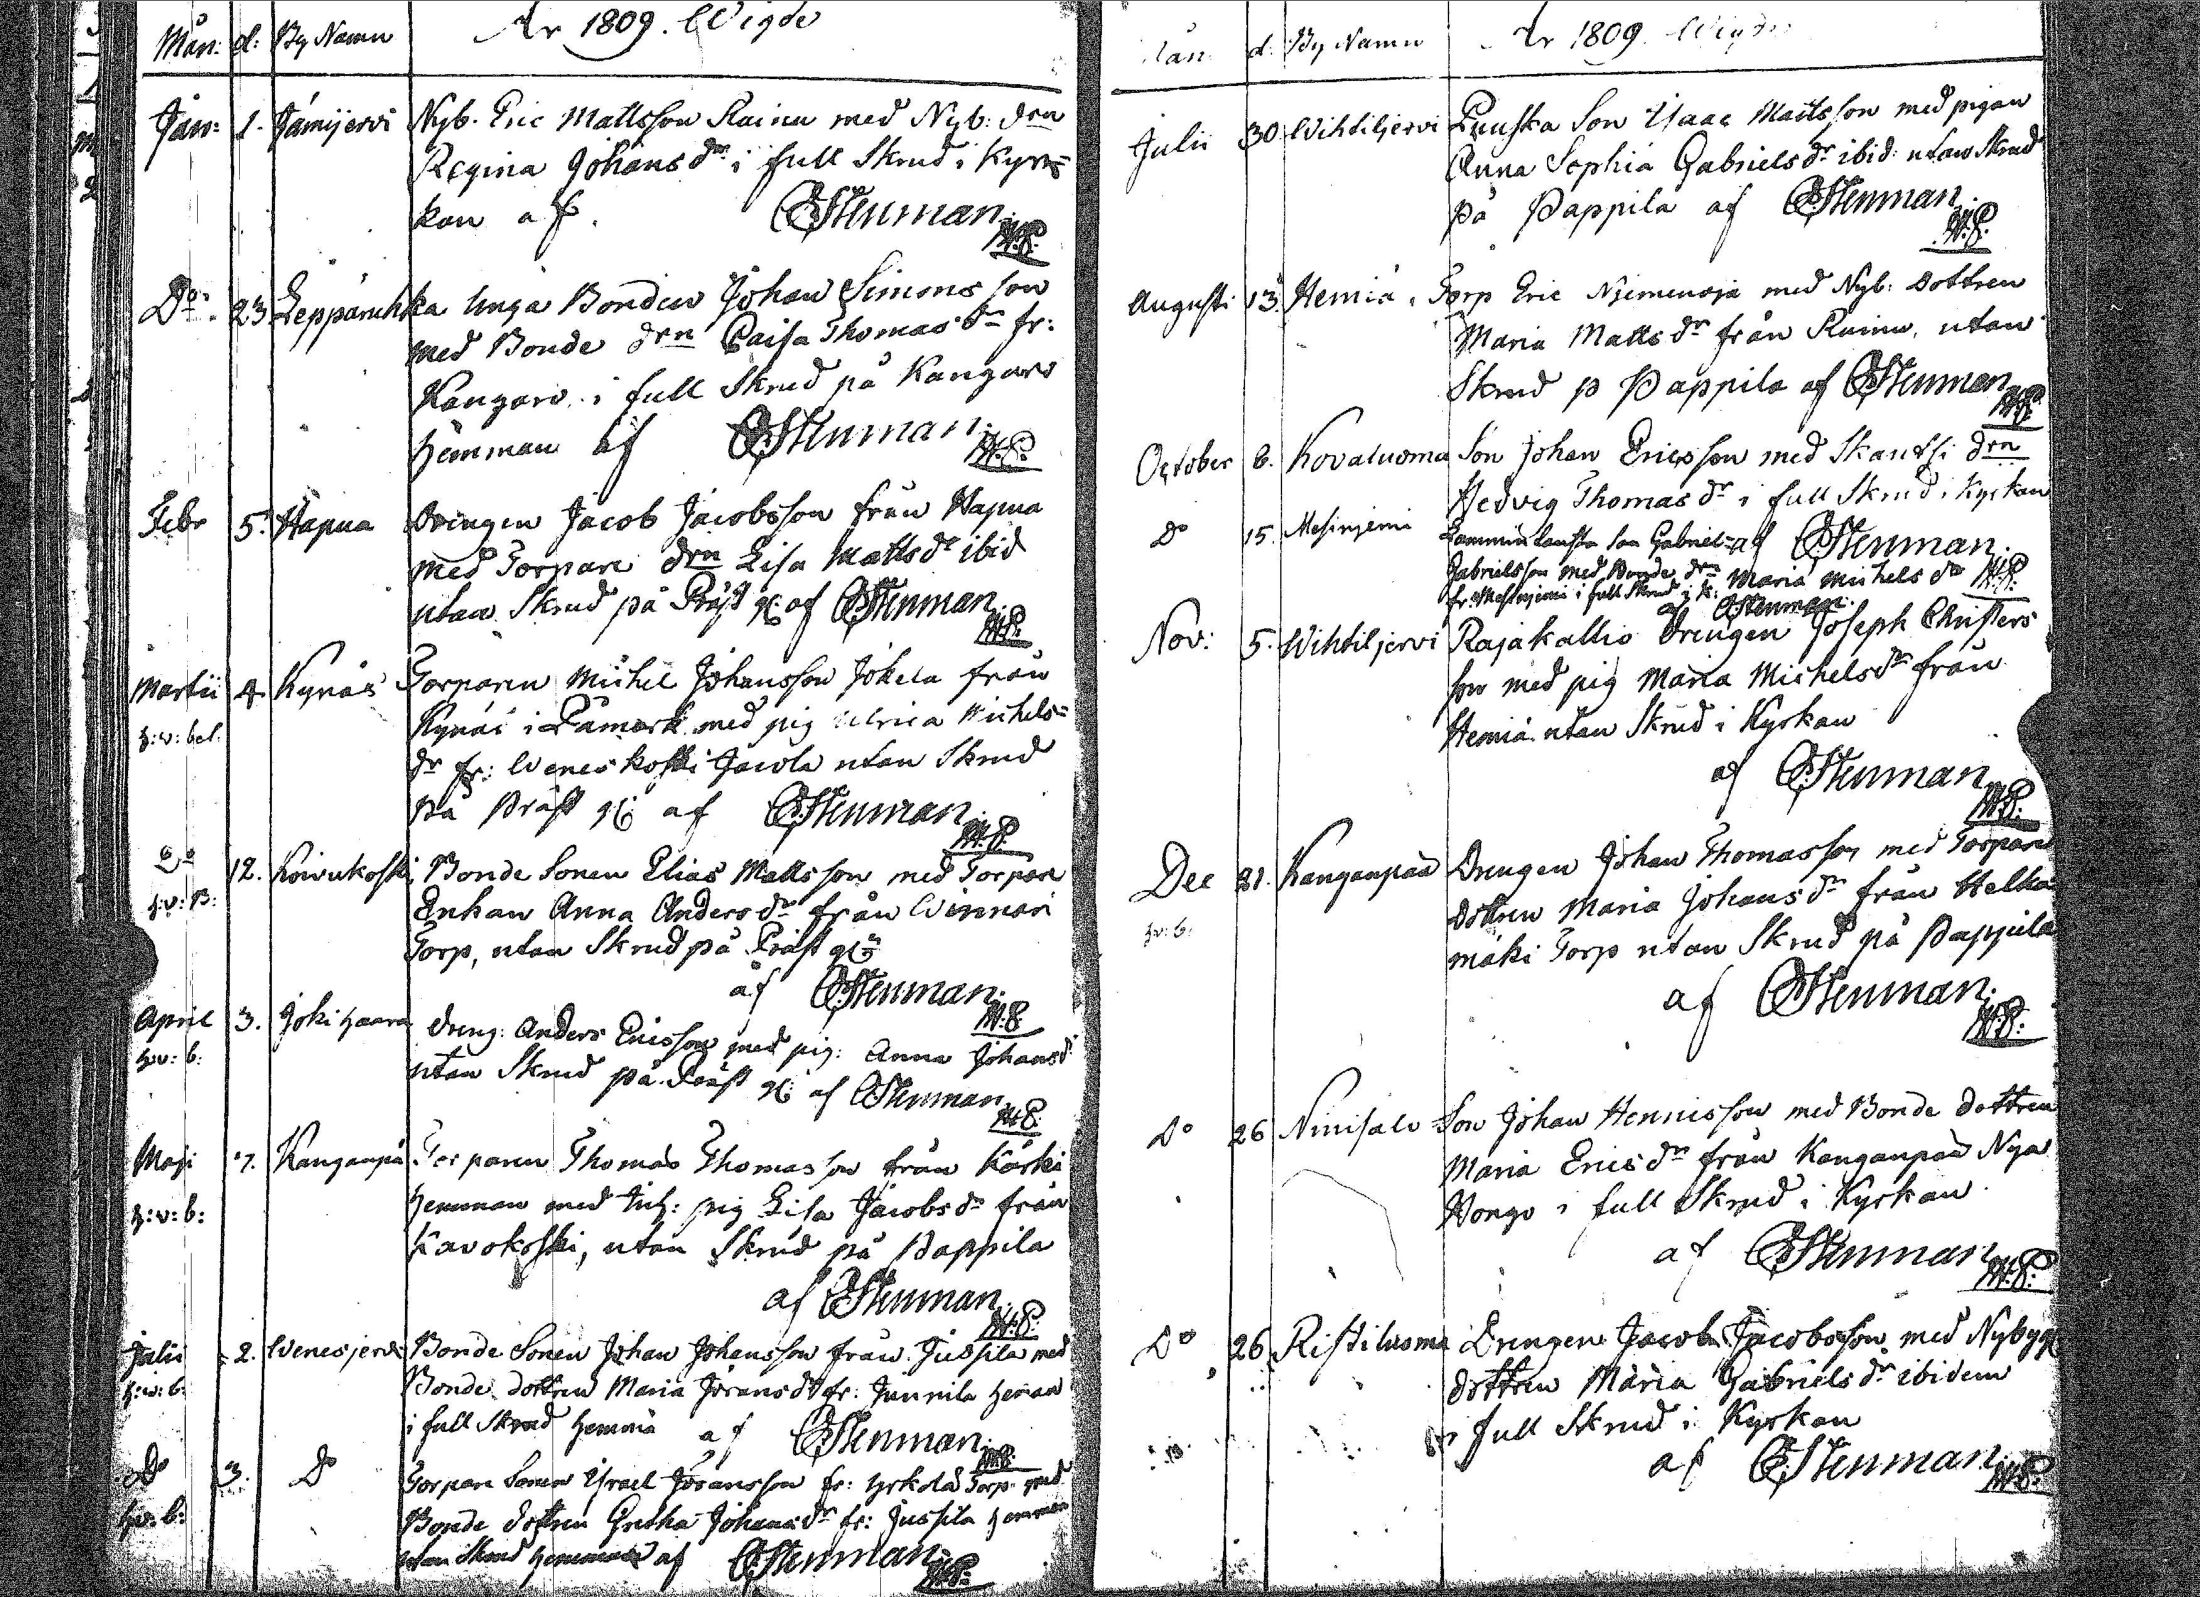 Mån: d: By Namn År 1809. Wigde
Jan: 1. Jämijervi Nyb. Eric Mattsson Rainu med Nyb: drn
Regina Johans dr i full Skrud i Kyrc=
kan af CStenman
M.P.
Do 23 Leppäruhka Unga Bonden Johan Simonsson
med Bonde drn Caisa Thomas dr fr:
Kangars i full Skrud på Kangars
hemman af CStenman
M.P.
Febr 5. Hapua Drengen Jacob Jacobsson från Hapua
med Torpare drn Lisa Matts dr ibid
utan Skrud på Präst g: af CStenman
M.P.
Martii 4 Kynäs Torparen Michel Johansson Jokela från
h:v: bel. Kynäs i Påmark med pig Ulrica Michels=
dr fr: Weneskoski Jacola utan Skrud
på Präst g: af CStenman
M.P.
Do 12. Koivukoski Bonde Sonen Elias Mattsson med Torpare
h:v: B: Enkan Anna Anders dr från Winnari
Torp, utan Skrud på Präst g:
af CStenman
M.P.
April 3. Jokihaara Dreng: Anders Ericsson med pig: Anna Johansd:
h:v: b: utan Skrud på Präst g: af CStenman
M.P.
Maji 7. Kanganpä Torparen Thomas Thomasson från Kärki
h:v: b: hemman med Inh: pig Lisa Jacobs dr från
Kavokoski, utan Skrud på Pappila
af CStenman
M.P.
Julii 2. Wenesjervi Bonde Sonen Johan Johansson från Jussila med
h:v: b: Bonde dottren Maria Jörans dr fr: Junnila heman
i full Skrud hemma af CStenman
M.P.
Do 3. Do Torpare Sonen Israel Jöransson fr: Yrkölä Torp med
h:v: b: Bonde dottren Gretha Johans dr fr: Jussila hemman
utan Skrud hemma af CStenman
M.P.
Mån d. By Namn År 1809 Wigde
Julii 30 Wihtiljervi Puuska Son Isaac Mattsson med pigan
Anna Sophia Gabriels dr ibid: utan Skrud
på Pappila af CStenman
M.P.
Augusti 13. Hemiä Torp Eric Niemenoja med Nyb: Dottren
Maria Matts dr från Rainu, utan
Skrud p Pappila af CStenman
M.P.
October 6. Kovaluoma Son Johan Ericsson med Skantsi drn
Hedvig Thomas dr i full Skrud i Kyrkan
af CStenman
M.P.
Do 15. Mesinjemi Son Gabriel
Gabrielsson med Bonde drn Maria Michels dr
fr: Mesinjemi i full Skrud i K:
af CStenman
Nov: 5. Wihtiljervi Rajakallio Drengen Joseph Christers
son med pig Maria Michels dr från
Hemiä utan Skrud i Kyrkan
af CStenman
M.P.
Dec 21. Kanganpää Drengen Johan Thomasson med Torpare
h:v: b: Dottren Maria Johans dr från Helka
mäki Torp utan Skrud på Pappila
af CStenman
M.P.
Do 26 Niinisalo Son Johan Hennisson med Bonde dottren
Maria Erics dr från Kanganpää Nya
Hongo i full Skrud i Kyrkan
af CStenman
M.P.
Do 26 Ristiluoma Drengen Jacob Jacobsson med Nybygg
dottren Maria Gabriels dr ibidem
i full Skrud i Kyrkan
af CStenman
M.P.